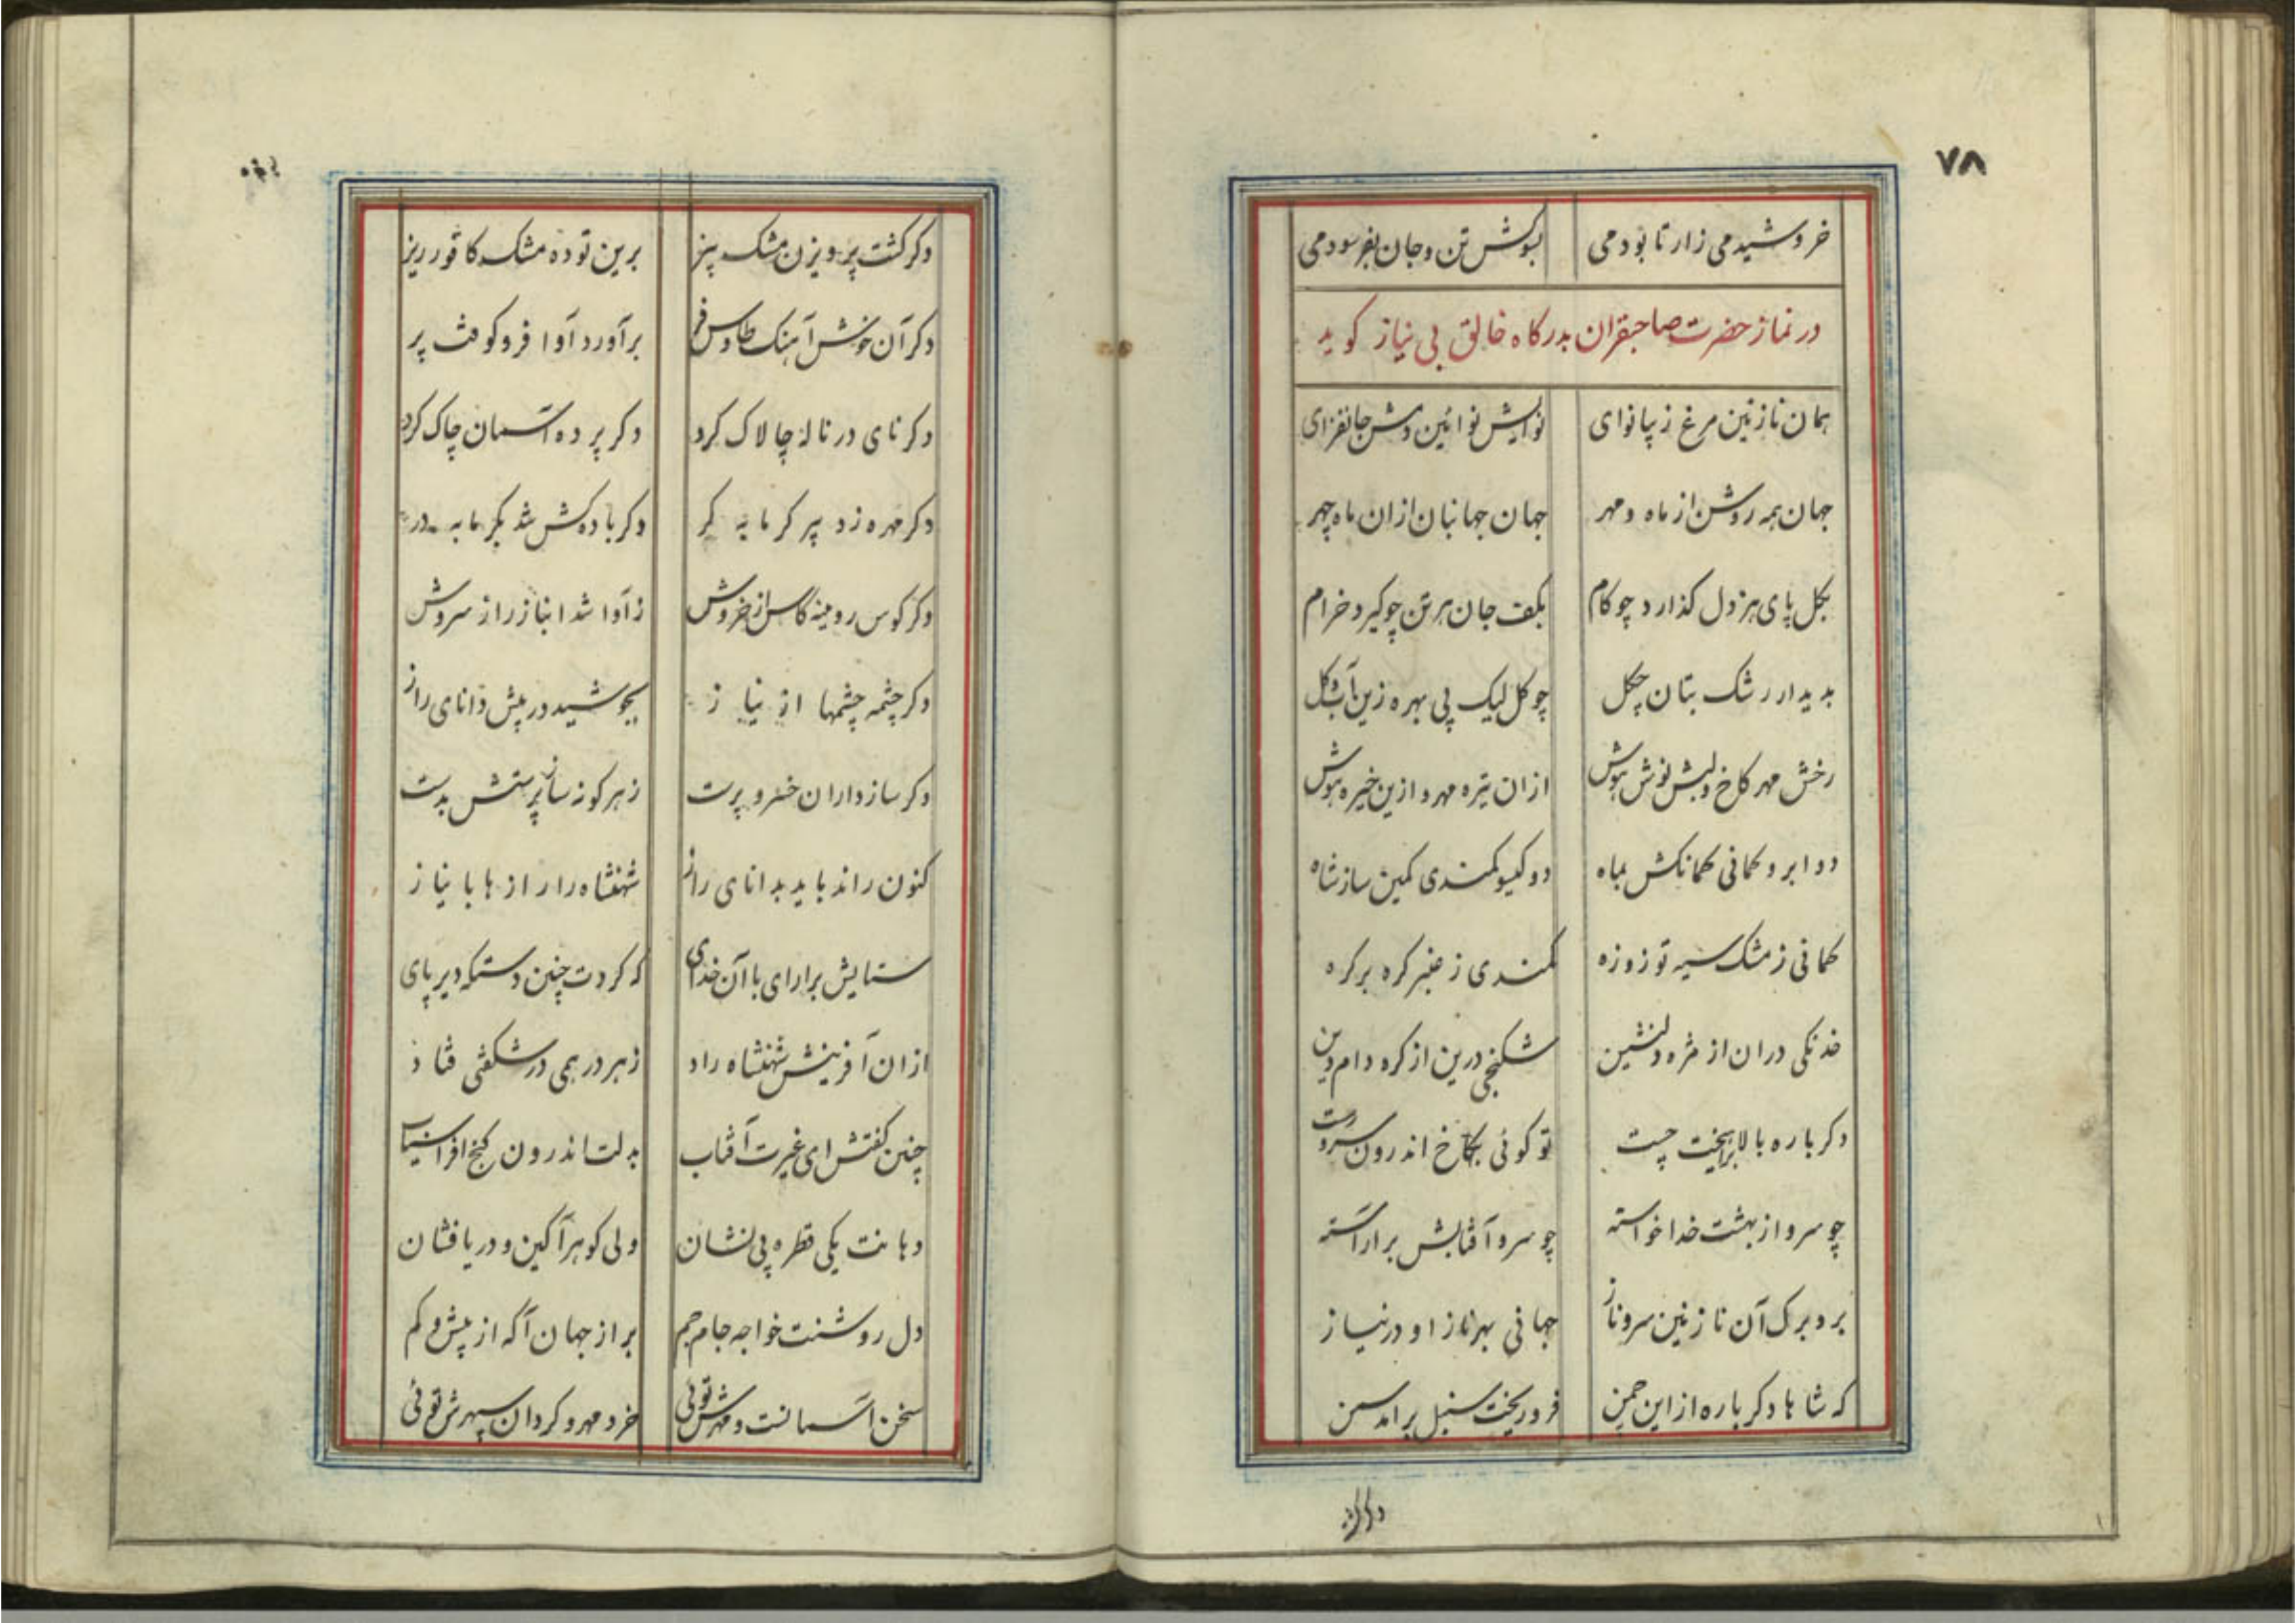 ۷۸
خروشیدمی زار تا بودمی بسوکش تن و جان بفرسودمی
در نماز حضرت صاحبقران بدرکاه خالق بی نیاز کوید
همان نازنین مرغ زیبا نوای نوایش نوائین دمش جانفزای
جهان همه روشن از ماه و مهر جهان جهانبان ازان ماه چهر
بکل پای هر دل کذارد چو کام بکف جان هر تن چو کیرد خرام
بدیدار رشک بتان چکل چو کل لیک بی بهره زین آب و کل
رخش مهر کاخ و لبش نوش هوش ازان تیره مهر و ازین خیره هوش
دو ابرو کمانی کمانکش بماه دو کیسو کمندی کمین ساز شاه
کمانی ز مشک سیه توز و زه کمندی ز عنبر کره بر کره
خدنکی دران از مژه دلنشین شکنجی درین از کره دام دین
دکرباره بالا برانیخت چست تو کوئی بکاخ اندرون سرو رست
چو سرو از بهشت خدا خواسته چو سرو آفتابش برآراسته
بر و برک آن نازنین سرو ناز جهانی بهر ناز او در نیاز
که شاها دکرباره از این چمن فرو ریخت سنبل برآمد سمن
دکر کشت پرویزن مشک بیز برین توده مشک کافور ریز
دکر آن خوش آهنک طاوس فر برآورد آوا فرو کوفت پر
دکر نای در ناله چالاک کرد دکر پرده آسمان چاک کرد
دکر مهره زد پیر کرمابه کر دکر باده کش شد بکرمابه در
دکر کوس رومینه کاس از خروش ز آوا شد انباز راز سروش
دکر چشمه چشمها از نیاز بجوشید در پیش دانای راز
دکر سازداران خسرو پرست ز هر کونه ساز پرستش بدست
کنون راند باید بدانای راز شهنشاه را رازها با نیاز
ستایش برآرای با آن خدای که کردت چنین دستکه دیرپای
ازان آفرینش شهنشاه راد ز هر در همی در شکفتی فتاد
چنین کفتش ای غیرت آفتاب بدلت اندرون کنج افراسیاب
دهانت یکی قطره بی نشان ولی کوهر آکین و دریا فشان
دل روشنت خواجه جام جم براز جهان آکه از بیش و کم
سخن آسمانست و مهرش توئی خرد مهر و کردان سپهرش توئی